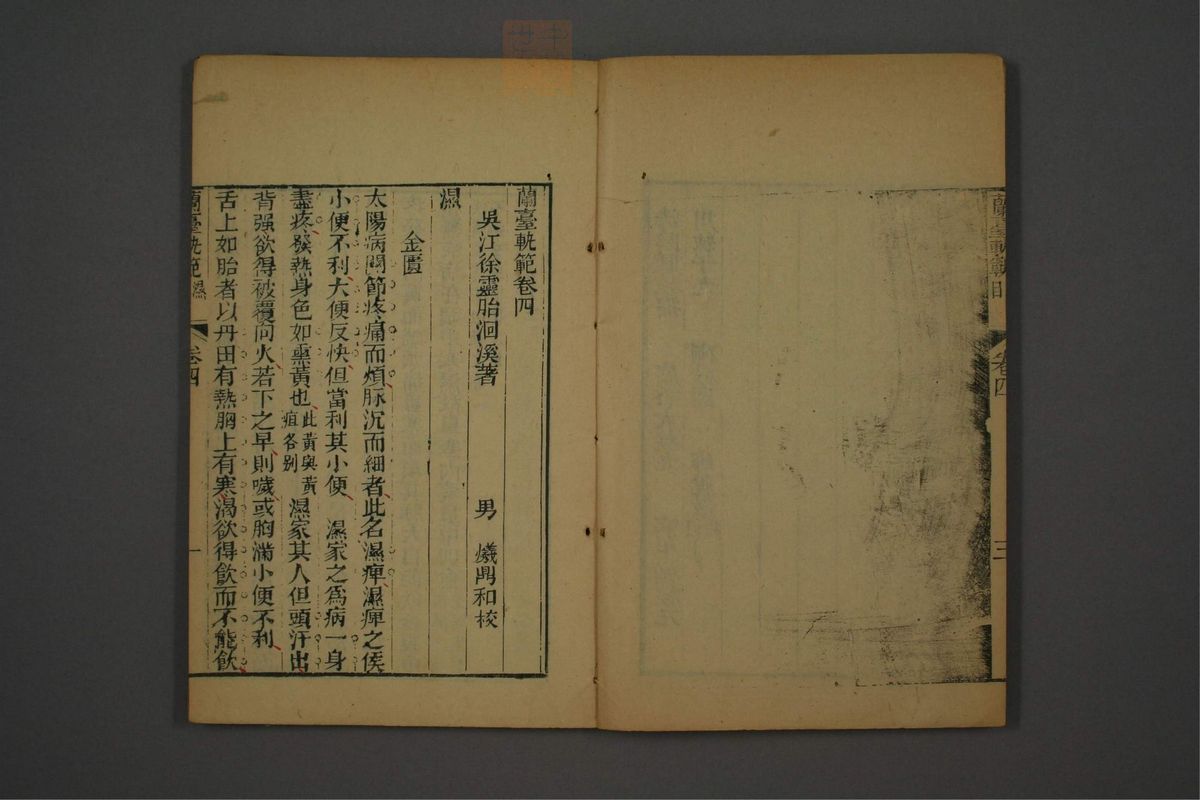 蘭臺軌範目
卷四
三
蘭臺軌範卷四
吳江徐靈胎洄溪著 男 爔鼎和校
濕
金匱
太陽病関節疼痛而煩脉沉而細者此名濕痺濕痺之候
小便不利大便反快但當利其小便 濕家之爲病一身
盡疼發熱身色如熏黃也此黃與黃疸各别 濕家其人但頭汗出
背强欲得被覆向火若下之早則噦或胸滿小便不利
舌上如胎者以丹田有熱胸上有寒渴欲得飮而不能飮
蘭臺軌範 濕
卷四
一